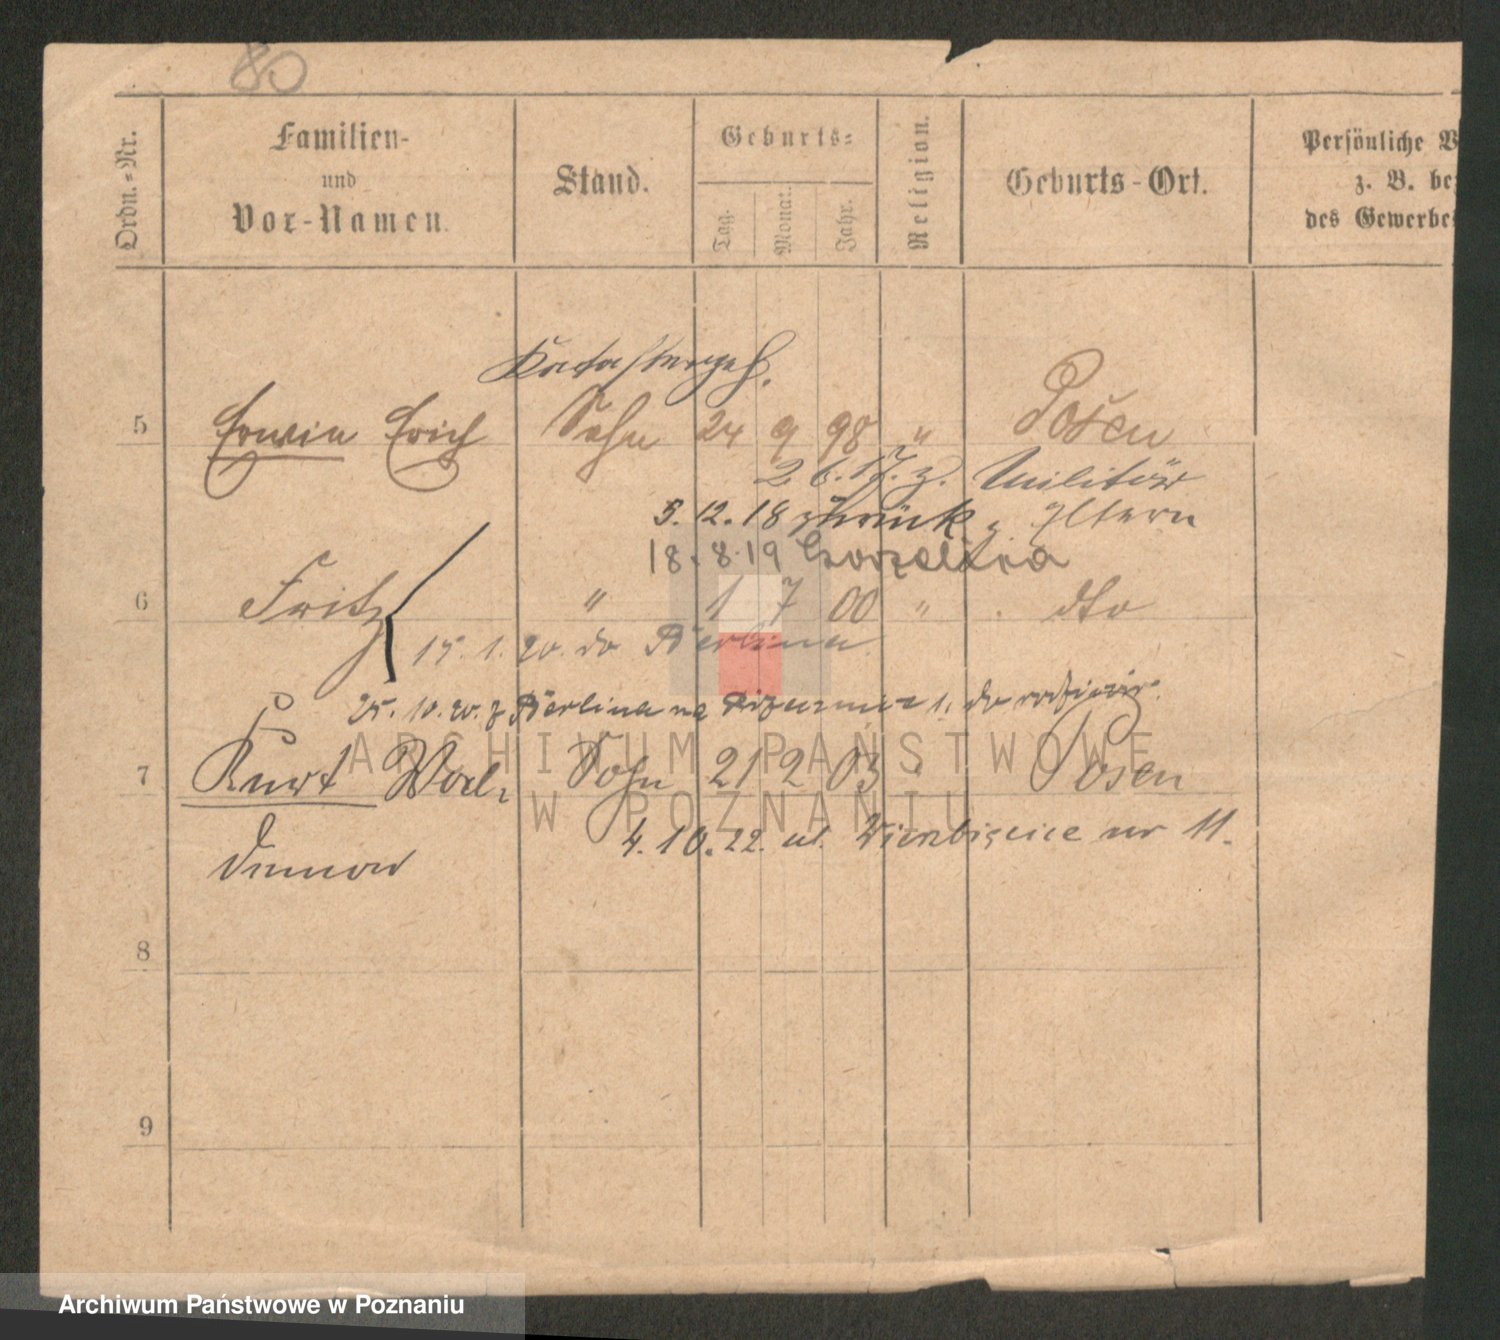 80
Ordn.-Nr.
Familien-
und
Vor-Namen.
Stand.
Geburts-
Tag. Monat. Jahr.
Religion.
Geburts-Ort.
Persönliche
z. B. be
des Gewerbe
Katastergeh.
5 Erwin Erich Sohn 24 9 98 " Posen
2.6.17. z. Militär
5. 12. 18 zurück z. Eltern
18. 8. 19
6 Fritz " 1 7 00 " dto
15. 1. 20. do Berlina.
25. 10. 20. z Berlina na
ARCHIWUM PAŃSTWOWE
7 Kurt Wol- Sohn 21 2 03 Posen
W POZNANIU
4. 10. 22. ul. Wierzbięcice nr 11.
8
9
Archiwum Państwowe w Poznaniu